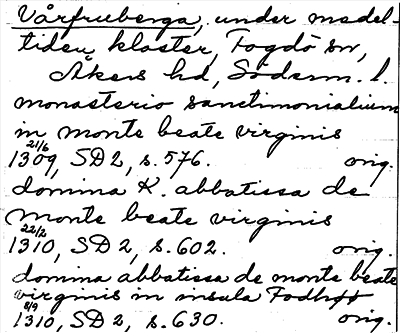 Vårfruberga, under medel-
tiden kloster, Fogdö sn,
Åkers hd, Söderm. l.
monasterio sanctimonialium
in monte beate virginis
21/6
1309, SD 2, s. 576. orig.
domina K. abbatissa de
monte beate virginis
22/2
1310, SD 2, s. 602. orig.
domina abbatissa de monte beate
virginis in insula
8/9
1310, SD 2, s. 630. orig.